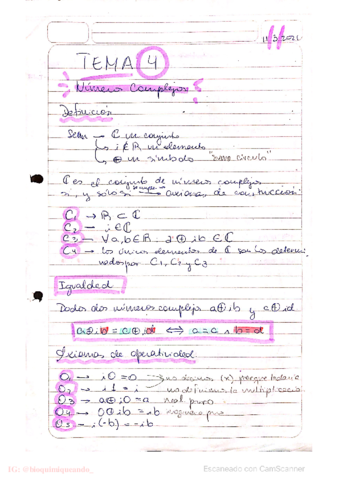 11/3/2021
TEMA 4
Números Complejos
Definición
Sean → ℂ un conjunto
↳ i ∉ ℝ un elemento
↳ ⊕ un símbolo "suma círculo"
ℂ es el conjunto de números complejos
si, y solo si → axiomas de construcción:
C1 → ℝ ⊂ ℂ
C2 → i ∈ ℂ
C3 → ∀a,b∈ℝ, a⊕ib ∈ ℂ
C4 → Los únicos elementos de ℂ son los determi
nados por C1, C2 y C3
Igualdad
Dados dos números complejos a⊕ib y c⊕id
a⊕ib = c⊕id ⟺ a=c ∧ b=d
Axiomas de operatividad
O1 → i0=0 → no usamos (x), porque todavía
O2 → i1=i no definimos la multiplicació
O3 → a⊕i0=a real puro
O4 → 0⊕ib=ib imagina puro
O5 → i(-b)=-ib
IG: @bioquimiqueando_
Escaneado con CamScanner